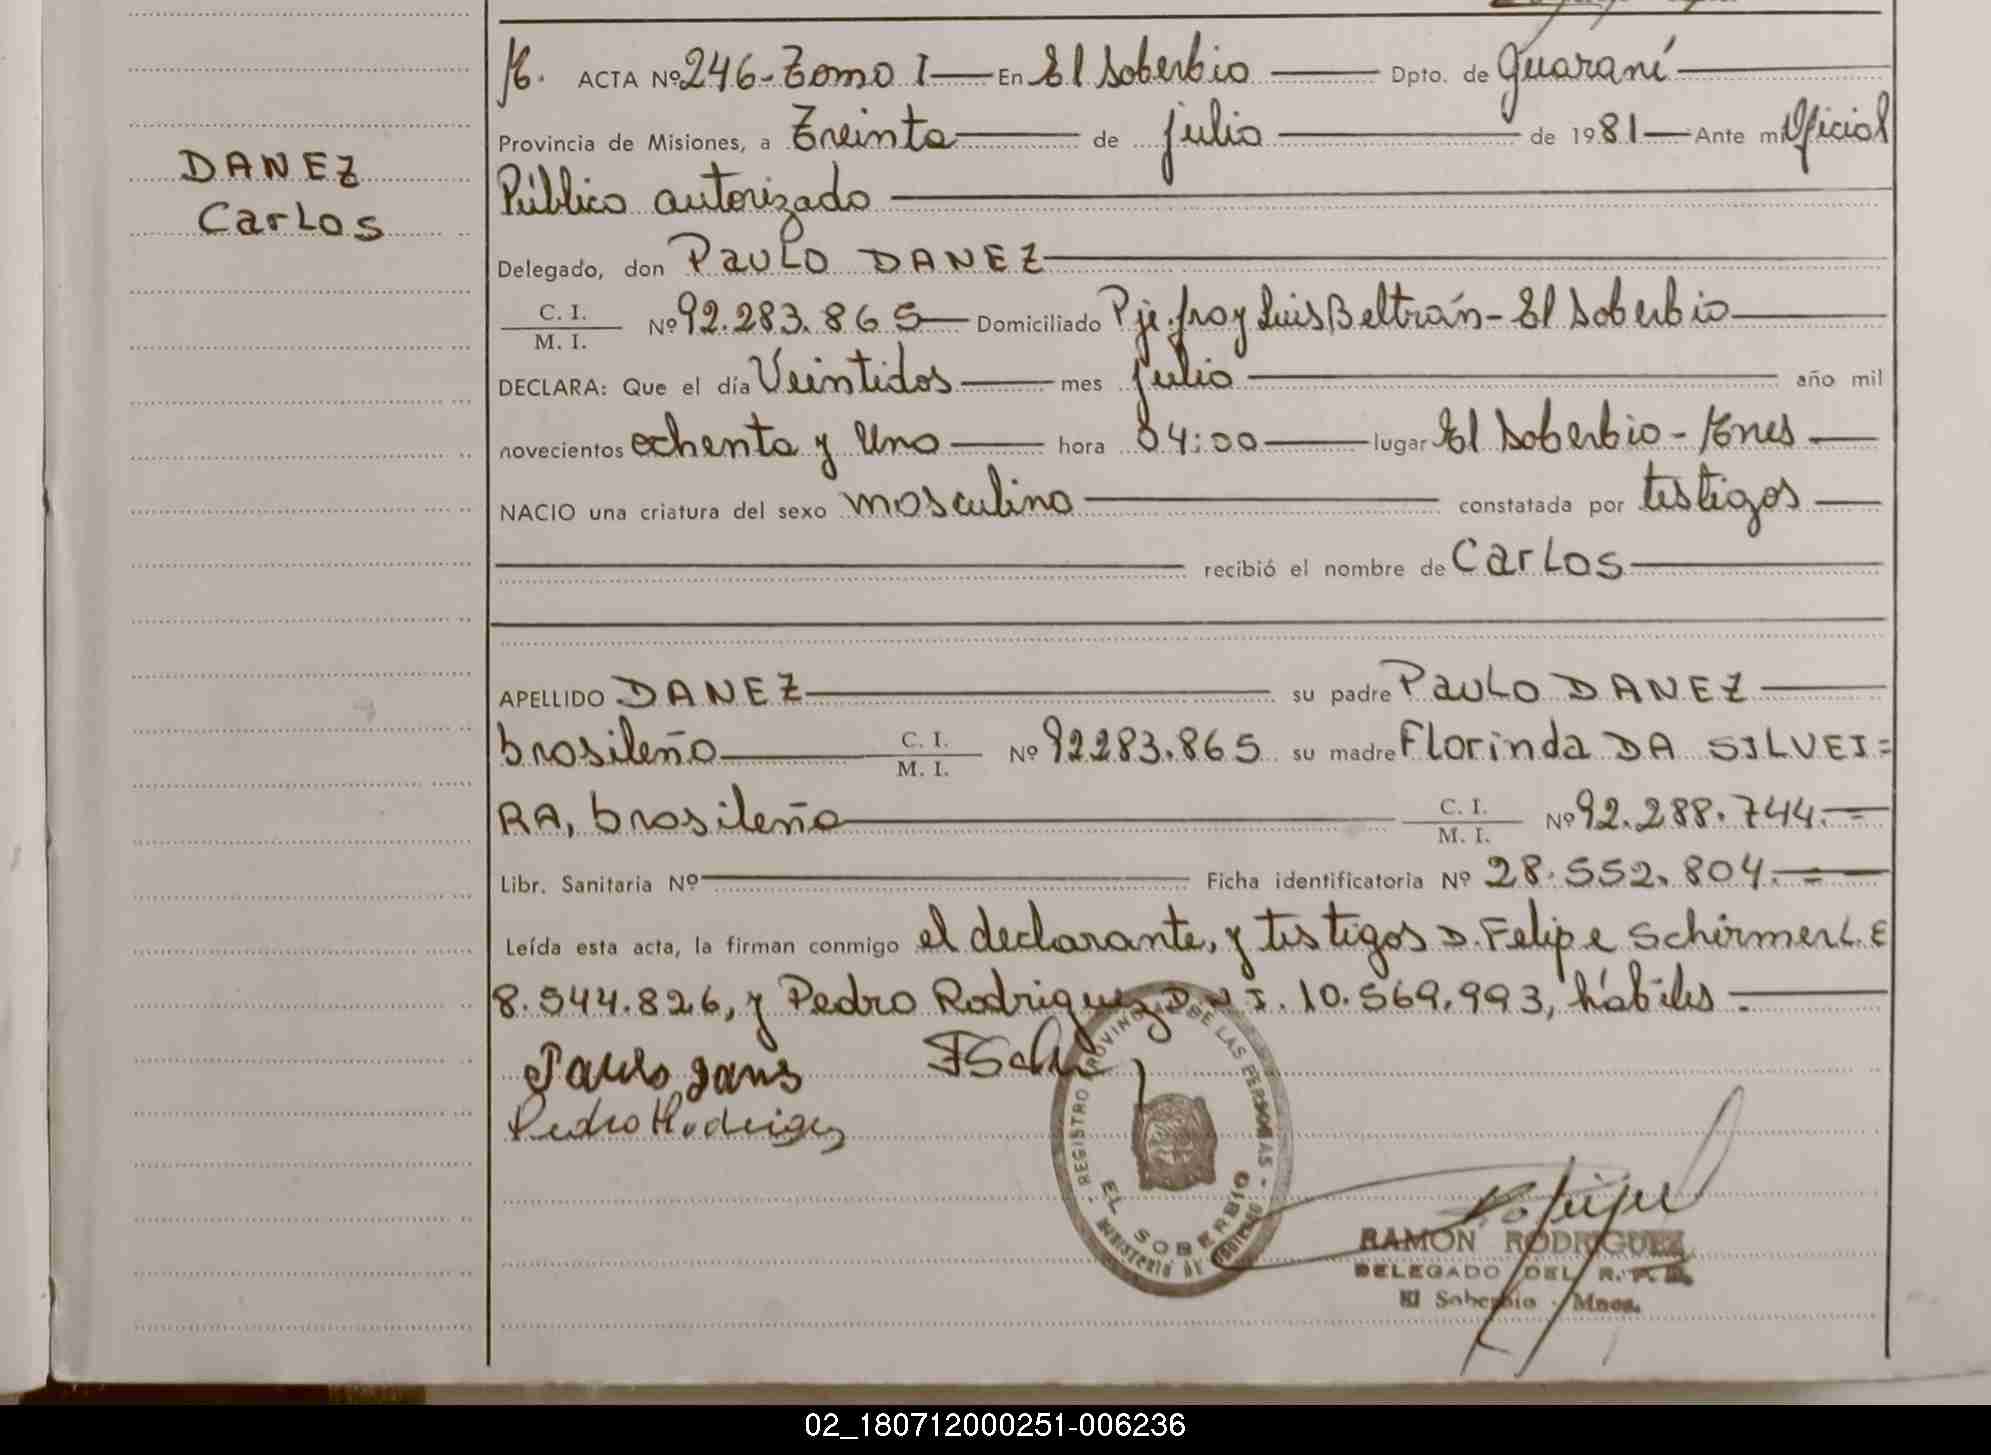 DANEZ
Carlos
M. ACTA Nº 246-Tomo I En El Soberbio Dpto. de Guaraní
Provincia de Misiones, a Treinta de julio de 1981 Ante mi Oficial
Público autorizado
Delegado, don Paulo DANEZ
C. I.
M. I. Nº 92.283.865 Domiciliado Pje. fray Luis Beltrán - El Soberbio
DECLARA: Que el día Veintidos mes julio año mil
novecientos ochenta y Uno hora 04:00 lugar El Soberbio - Mnes
NACIO una criatura del sexo masculino constatada por testigos
recibió el nombre de Carlos
APELLIDO DANEZ su padre Paulo DANEZ
brasileño C. I. M. I. Nº 92283.865 su madre Florinda DA SILVEI=
RA, brasileña C. I. M. I. Nº 92.288.744.=
Libr. Sanitaria Nº Ficha identificatoria Nº 28.552.804.=
Leída esta acta, la firman conmigo el declarante, y testigos D. Felipe Schirmer L.E
8.544.826, y Pedro Rodriguez D.N.I. 10.569.993, hábiles.
Paulo FSch
Pedro Rodriguez
- REGISTRO PROVINCIAL DE LAS PERSONAS -
EL SOBERBIO
MINISTERIO DE GOBIERNO
RAMON RODRIGUEZ
DELEGADO DEL R.P.P.
El Soberbio - Mnes.
02_180712000251-006236